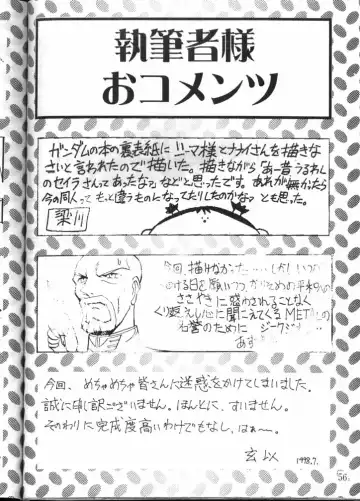 執筆者様
おコメンツ
ガンダムの本の裏表紙にハマーン様とナナイさんを描きな
さいと言われたので描いた。描きながら「あー昔うるわし
のセイラさんってあったなァ」などと思ったです。あれが無かったら
今の同人ってもっと違うものとなってたりしたのかなぁ とも思った。
梁川
今回、描けなかった……しかしいつ
ける日を願いつつ、かりそめの平和の
ささやきに惑わされることなく
くり返し心に聞こえてくるMETALの
名誉のために ジーク
今回、めちゃめちゃ皆さんに迷惑をかけてしまいました。
誠に申し訳ございません。ほんとに、すいません。
そのわりに完成度高いわけでもなし、はぁ〜。
玄以 1998.7.
56